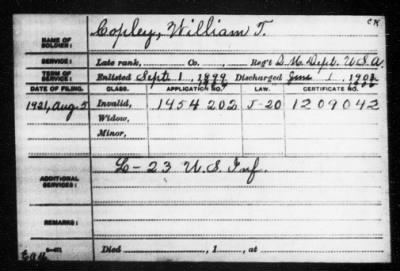 CK
NAME OF SOLDIER: Copley, William T.
SERVICE: Late rank, Co. , Reg't Q.M. Dept. U.S.A.
TERM OF SERVICE: Enlisted Sept. 1, 1899 Discharged June 1, 1902
DATE OF FILING. CLASS. APPLICATION NO. LAW. CERTIFICATE NO.
1921, Aug. 5 Invalid, 1454202 J-20 1209042
Widow,
Minor,
ADDITIONAL SERVICES: L-23 U.S. Inf.
REMARKS:
Died , 1 , at